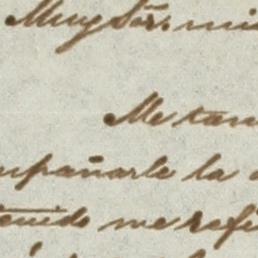 Muy Sōr. mi
Me tom
mpañarle la
tenido me refi